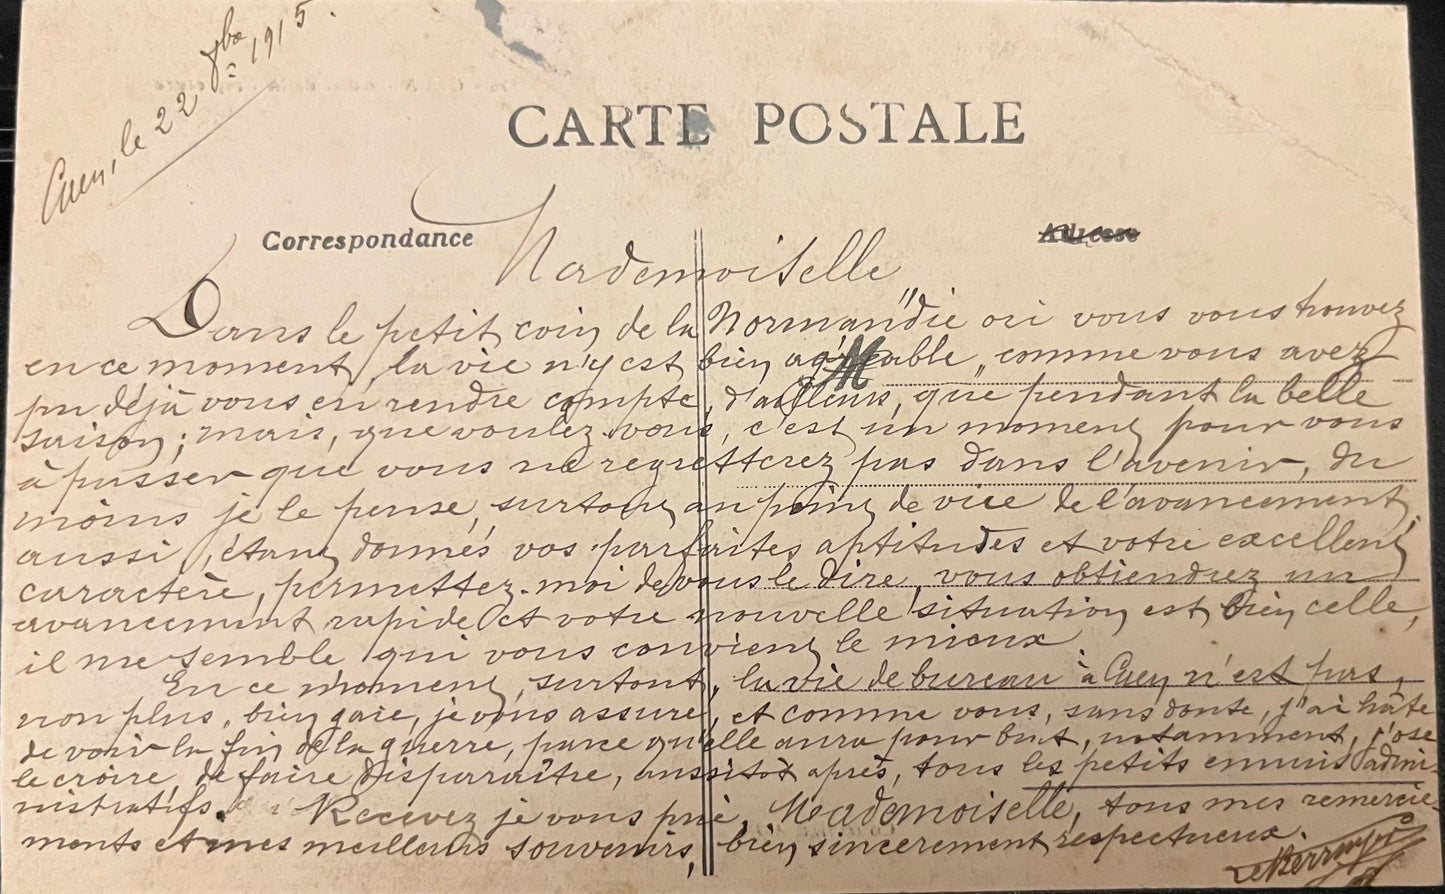 Caen, le 22 7bre 1915.
CARTE POSTALE
Correspondance
Adresse
Mademoiselle,
Dans le petit coin de la "Normandie où vous vous trouvez
en ce moment, la vie n'y est bien agréable, comme vous avez
pu déjà vous en rendre compte, d'ailleurs, que pendant la belle
saison; mais, que voulez-vous, c'est un moment pour vous
à passer que vous ne regretterez pas dans l'avenir, du
moins je le pense, surtout au point de vue de l'avancement,
aussi, étant donnés vos parfaites aptitudes et votre excellent
caractère, permettez-moi de vous le dire, vous obtiendrez un
avancement rapide et votre nouvelle situation est bien celle,
il me semble qui vous convient le mieux.
En ce moment, surtout, la vie de bureau à Caen n'est pas,
non plus, bien gaie, je vous assure, et comme vous, sans doute, j'ai hâte
de voir la fin de la guerre, parce qu'elle aura pour but, notamment, j'ose
le croire, de faire disparaître, aussitôt après, tous les petits ennuis admi-
nistratifs. Recevez je vous prie, Mademoiselle, tous mes remercie-
ments et mes meilleurs souvenirs, bien sincèrement respectueux.